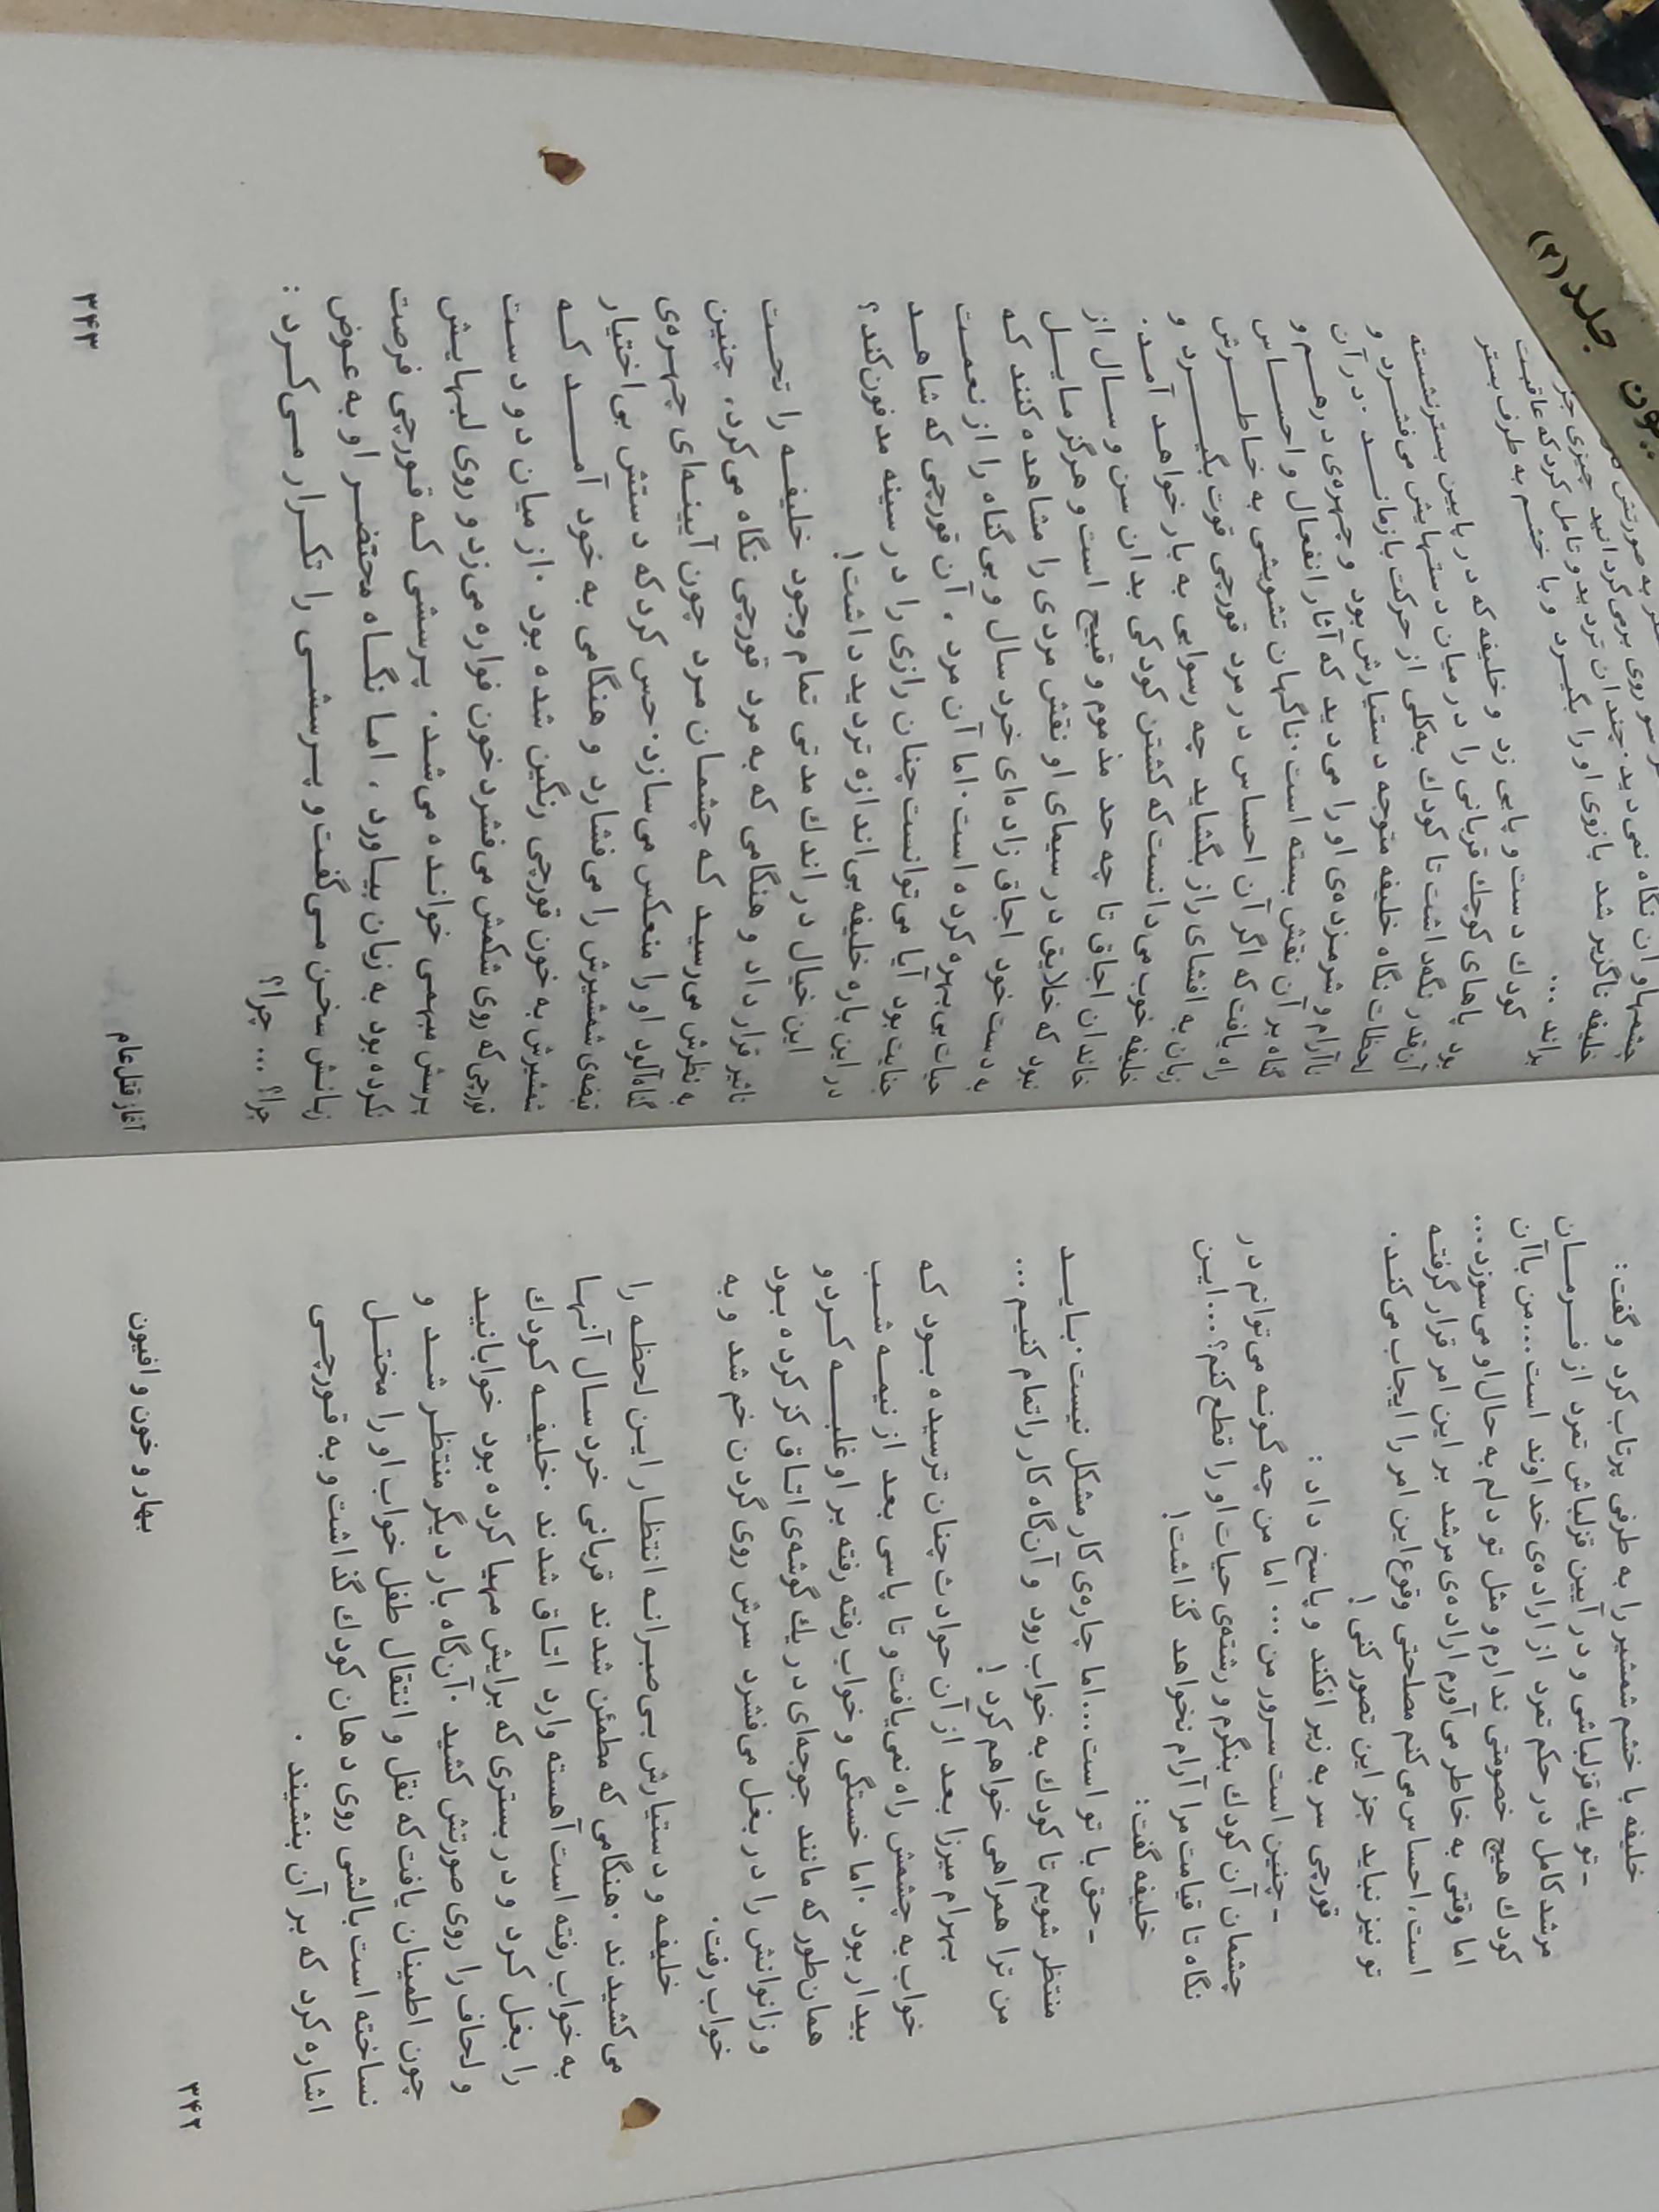 بهار و خون و افیون
۳۴۲
اشاره کرد که بر آن بنشیند .
نساخته است بالشی روی دهان کودك گذاشت و به قورچی
چون اطمینان یافت که نقل و انتقال طفل خواب او را مختل
و لحاف را روی صورتش کشید . آن‌گاه بار دیگر منتظر شد و
را بغل کرد و در بستری که برایش مهیا کرده بود خوابانید
به خواب رفته است آهسته وارد اتاق شدند . خلیفه کودك
می‌کشیدند . هنگامی که مطمئن شدند قربانی خردسال آنها
خلیفه و دستیارش بی‌صبرانه انتظار این لحظه را
خواب رفت .
و زانوانش را در بغل می‌فشرد سرش روی گردن خم شد و به
همان‌طور که مانند جوجه‌ای در یك گوشه‌ی اتاق کز کرده بود
بیدار بود . اما خستگی و خواب رفته رفته بر او غلبه کرد و
خواب به چشمش راه نمی‌یافت و تا پاسی بعد از نیمه شب
بهرام میرزا بعد از آن حوادث چنان ترسیده بود که
من ترا همراهی خواهم کرد !
منتظر شویم تا کودك به خواب رود و آن‌گاه کار را تمام کنیم ...
- حق با تو است ... اما چاره‌ی کار مشکل نیست . باید
خلیفه گفت :
نگاه تا قیامت مرا آرام نخواهد گذاشت !
چشمان آن کودك بنگرم و رشته‌ی حیات او را قطع کنم ؟ ... این
- چنین است سرور من ... اما من چه گونه می‌توانم در
قورچی سر به زیر افکند و پاسخ داد :
تو نیز نباید جز این تصور کنی !
است ، احساس می‌کنم مصلحتی وقوع این امر را ایجاب می‌کند .
اما وقتی به خاطر می‌آورم اراده‌ی مرشد بر این امر قرار گرفته
کودك هیچ خصومتی ندارم و مثل تو دلم به حال او می‌سوزد ...
مرشد کامل در حکم تمرد از اراده‌ی خداوند است ... من با آن
- تو یك قزلباشی و در آیین قزلباش تمرد از فرمان
خلیفه با خشم شمشیر را به طرفی پرتاب کرد و گفت :
آغاز قتل‌عام
۳۴۳
چرا ؟ ... چرا ؟
زبانش سخن می‌گفت و پرسشی را تکرار می‌کرد :
نکرده بود به زبان بیاورد ، اما نگاه محتضر او به عوض
پرسش مبهمی خوانده می‌شد . پرسشی که قورچی فرصت
قورچی که روی شکمش می‌فشرد خون فواره می‌زد و روی لبهایش
شمشیرش به خون قورچی رنگین شده بود . از میان دو دست
قبضه‌ی شمشیرش را می‌فشارد و هنگامی به خود آمد که
گناه‌آلود او را منعکس می‌سازد . حس کرد که دستش بی‌اختیار
به نظرش می‌رسید که چشمان مرد چون آیینه‌ای چهره‌ی
تاثیر قرار داد و هنگامی که به مرد قورچی نگاه می‌کرد ، چنین
این خیال در اندك مدتی تمام وجود خلیفه را تحت
در این باره خلیفه بی‌اندازه تردید داشت !
جنایت بود آیا می‌توانست چنان رازی را در سینه مدفون کند ؟
حیات بی‌بهره کرده است . اما آن مرد ، آن قورچی که شاهد
به دست خود اجاق زاده‌ای خردسال و بی‌گناه را از نعمت
نبود که خلایق در سیمای او نقش مردی را مشاهده کنند که
خاندان اجاق تا چه حد مذموم و قبیح است و هرگز مایل
خلیفه خوب می‌دانست که کشتن کودکی بدان سن و سال از
زبان به افشای راز بگشاید چه رسوایی به بار خواهد آمد .
راه یافت که اگر آن احساس در مرد قورچی قوت بگیرد و
گناه بر آن نقش بسته است . ناگهان تشویشی به خاطرش
ناآرام و شرمزده‌ی او را می‌دید که آثار انفعال و احساس
لحظات نگاه خلیفه متوجه دستیارش بود و چهره‌ی درهم و
آن‌قدر نگهداشت تا کودك به‌کلی از حرکت بازماند . در آن
بود پاهای کوچك قربانی را در میان دستهایش می‌فشرد و
کودك دست و پایی زد و خلیفه که در پایین بستر نشسته
براند ...
خلیفه ناگزیر شد بازوی او را بگیرد و با خشم به طرف بستر
نگاه نمی‌دید . چندان تردید و تامل کرد که عاقبت
سو روی برمی‌گردانید چیزی جز
به صورتش
جلد (۲)